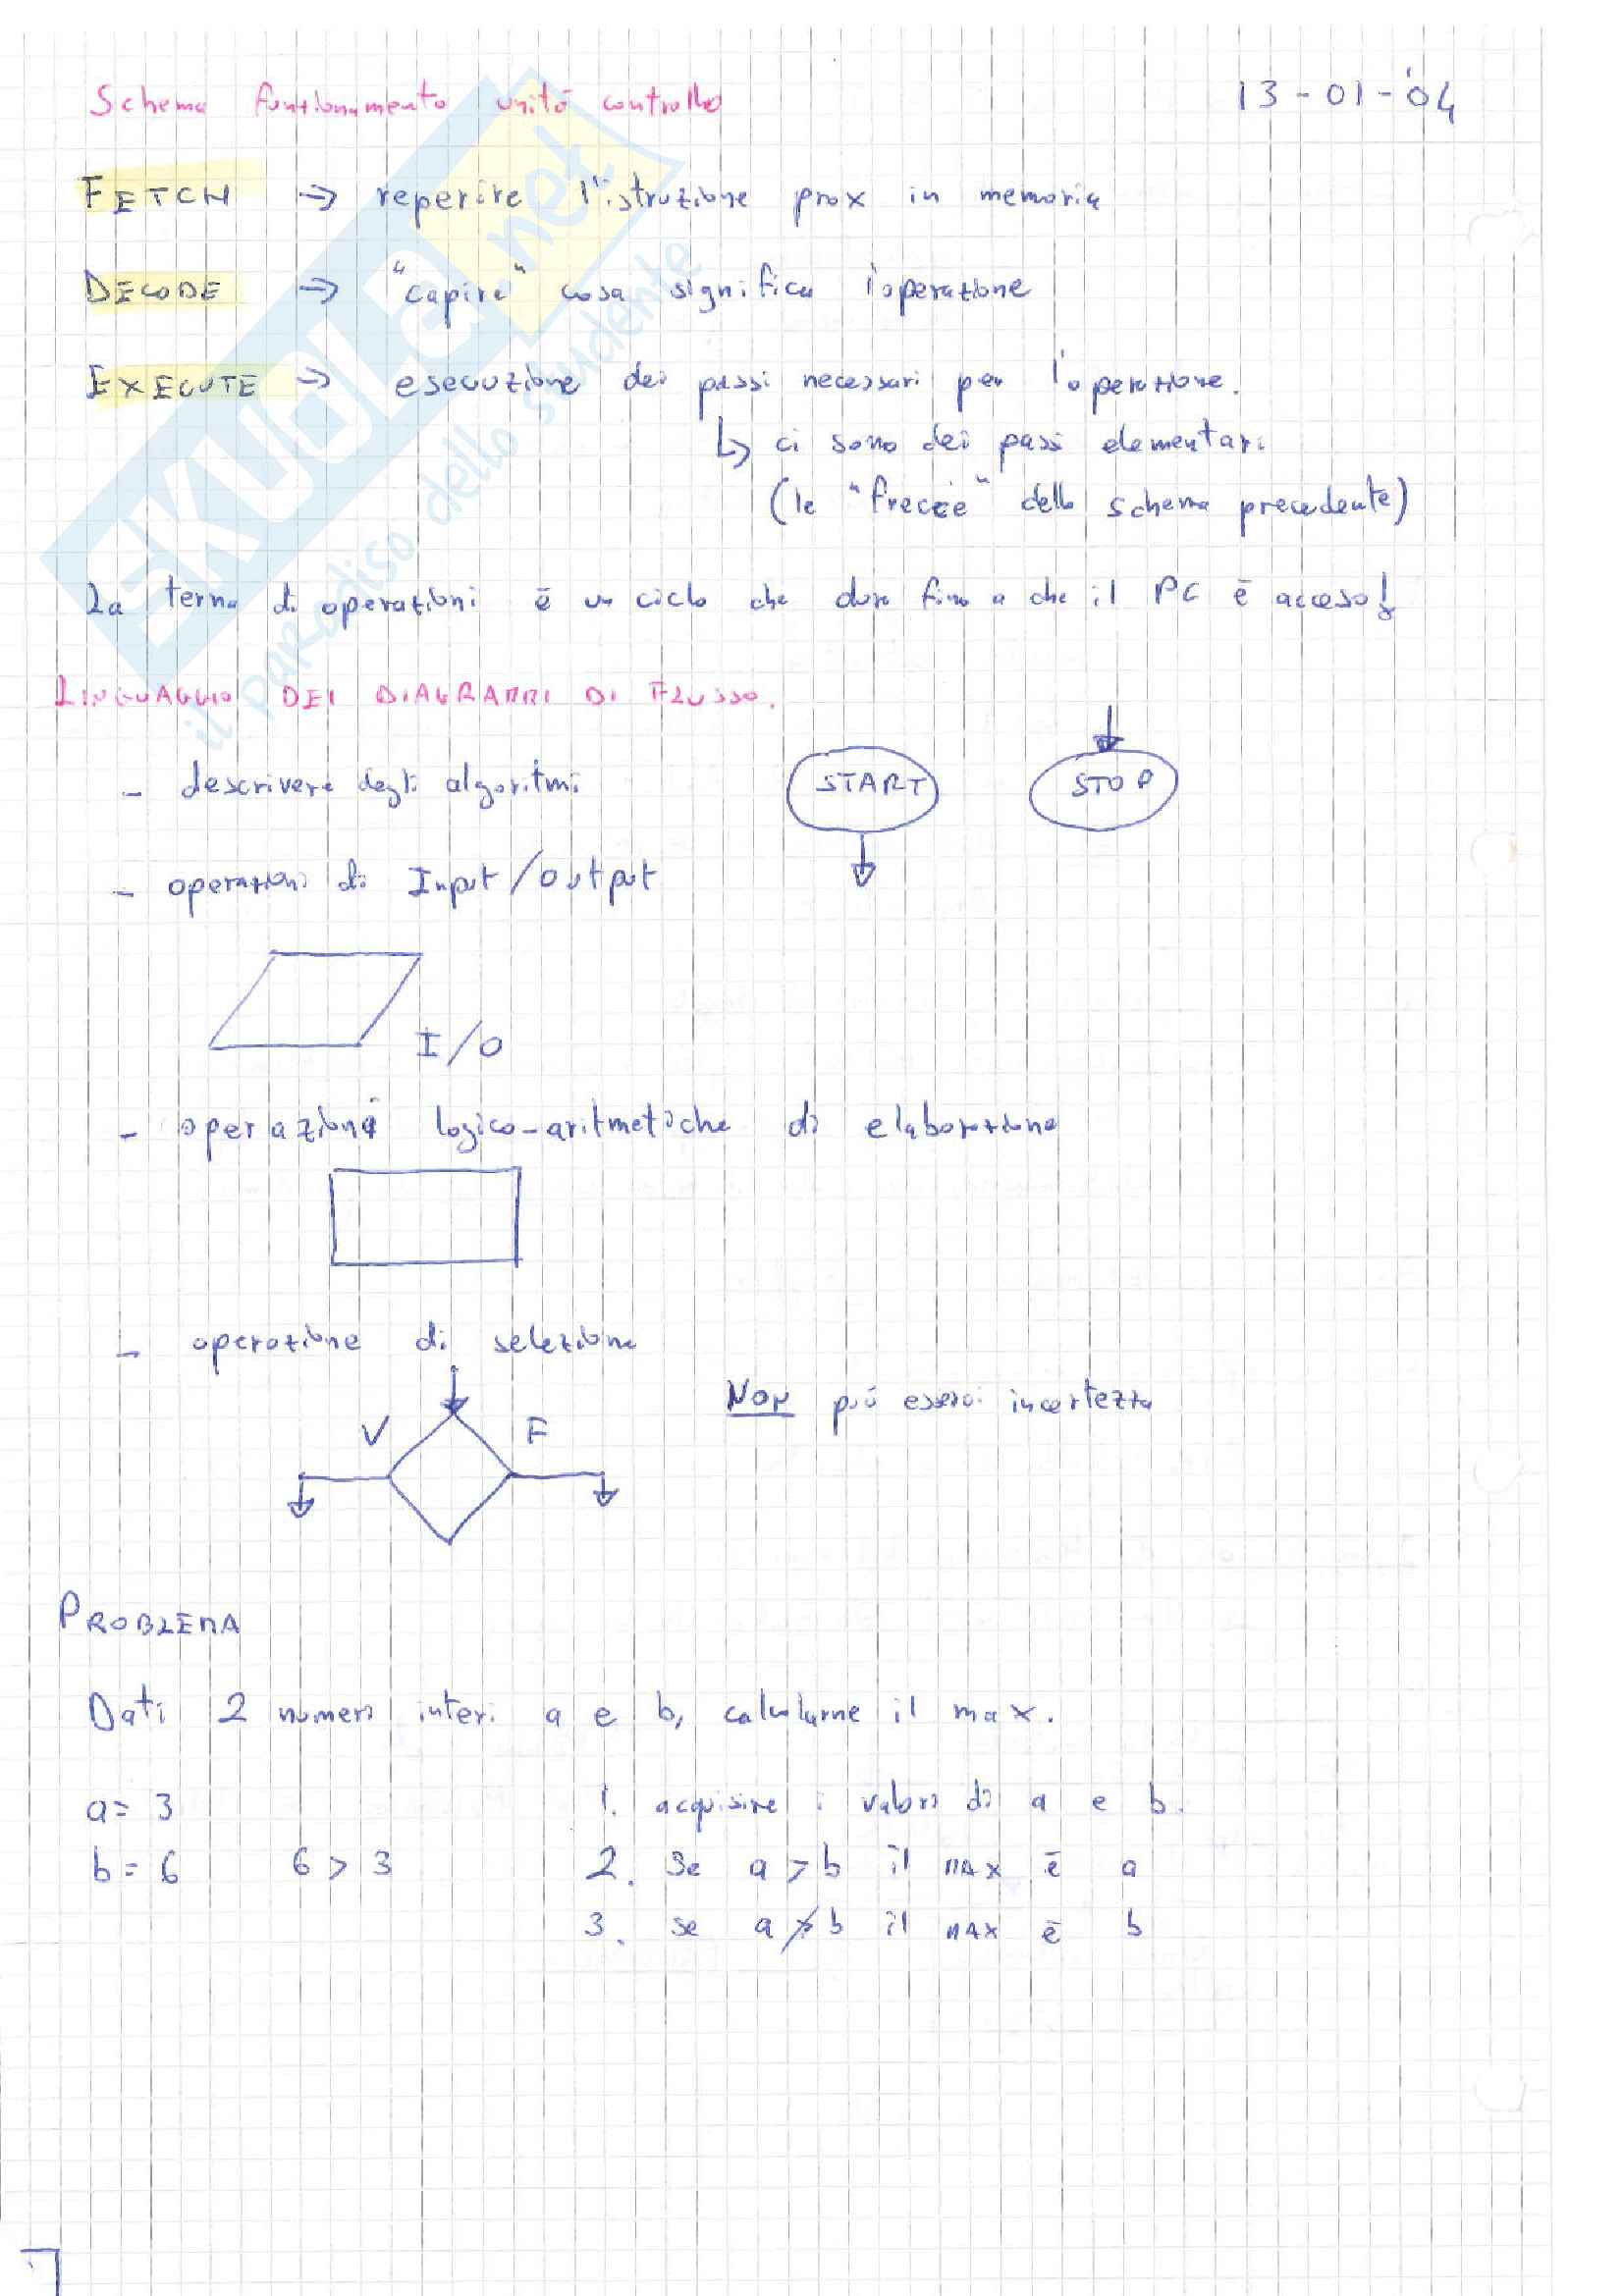 Schema funzionamento unità controllo
13-01-'04
FETCH → reperire l'istruzione prox in memoria
DECODE → "capire" cosa significa l'operazione
EXECUTE → esecuzione dei passi necessari per l'operazione.
↳ ci sono dei passi elementari
(le "frecce" dello schema precedente)
La terna di operazioni è un ciclo che dura fino a che il PC è acceso!
LINGUAGGIO DEI DIAGRAMMI DI FLUSSO.
- descrivere degli algoritmi
START
STOP
- operazioni di Input/output
I/O
- operazioni logico-aritmetiche di elaborazione
- operazione di selezione
V
F
NON può esserci incertezza
PROBLEMA
Dati 2 numeri interi a e b, calcolarne il max.
a= 3
1. acquisire i valori di a e b.
b= 6 6 > 3
2. Se a > b il MAX è a
3. se a ≯ b il MAX è b
SKUOLA.net
il paradiso dello studente